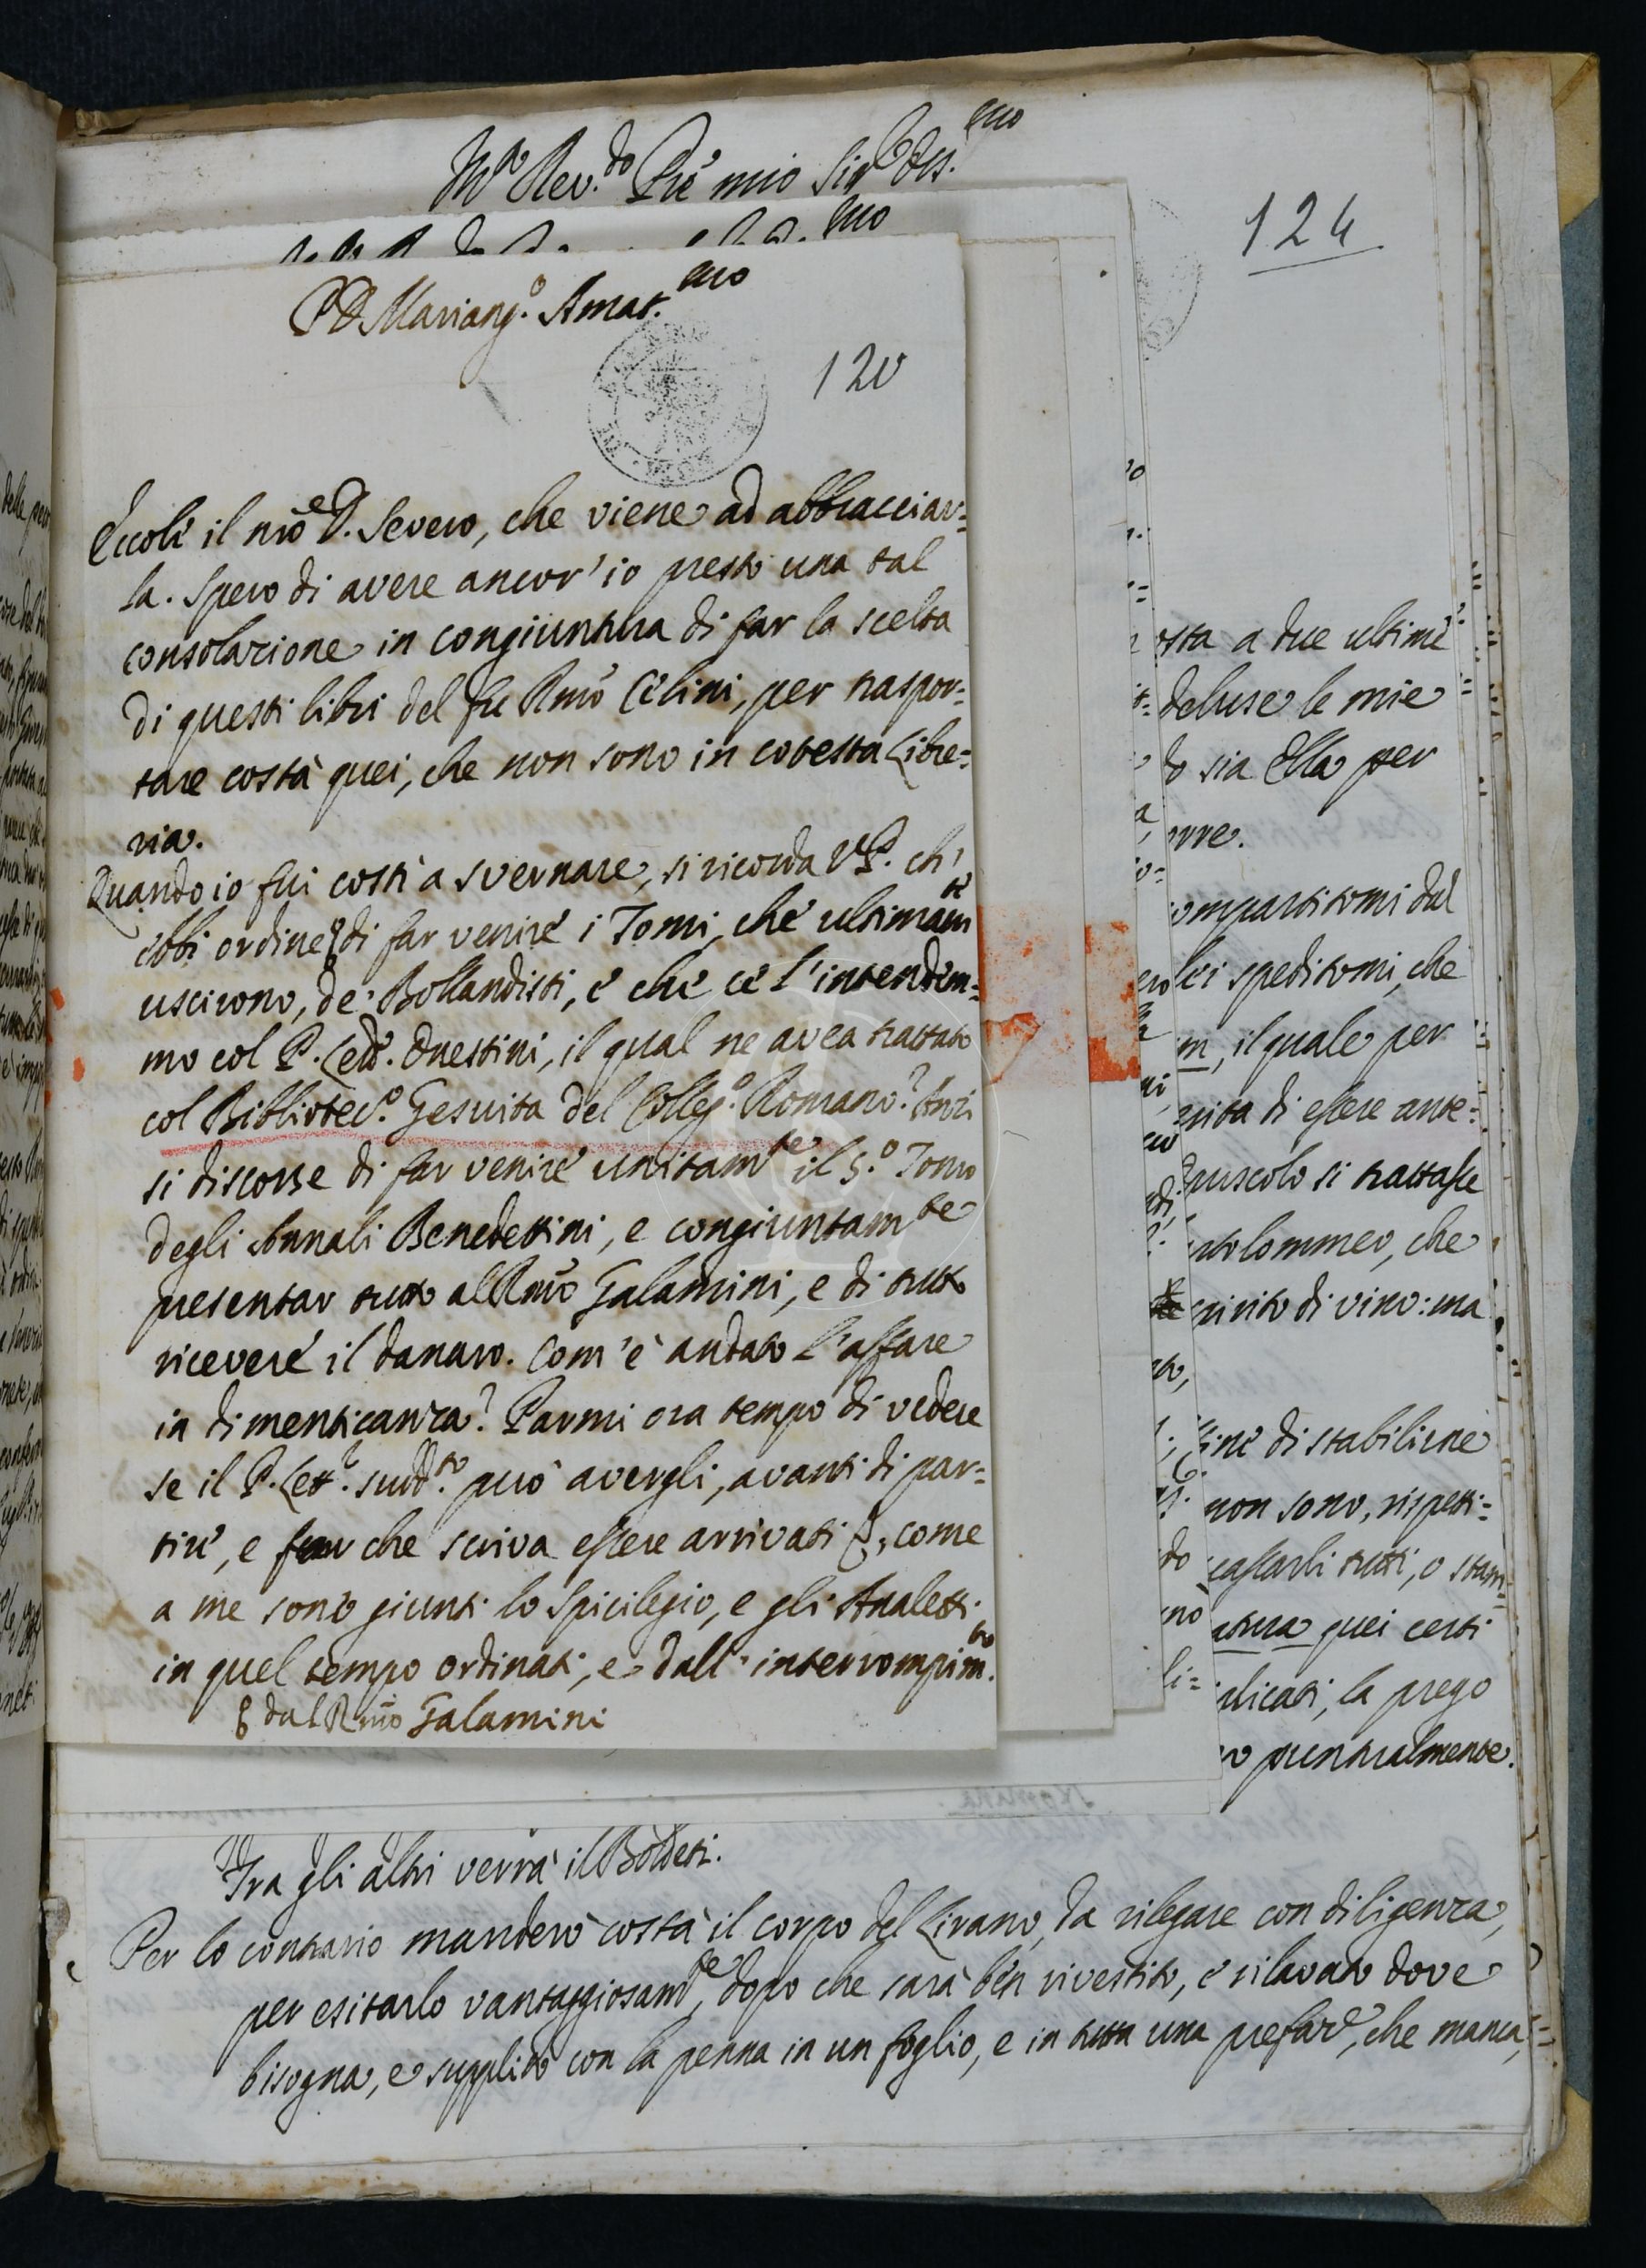 M.o Rev.do P̃re mio Sig.r Oss.mo
124
P. D. Mariang.o Amat.mo
120
Eccole il nr̃o P. D. Severo, che viene ad abbracciar=
la. Spero di avere ancor' io presto una tal
consolazione in congiuntura di far la scelta
di questi libri del fu Rm̃o Celini, per traspor=
tare costà quei, che non sono in cotesta Libre=
ria.
Quando io fui costì a svernare, si ricorda V. P. ch'
ebbi ordine di far venire i Tomi, che ultimam.te
uscirono, de' Bollandisti, e che ce l'intendem=
mo col P. Lett.e Onestini, il qual ne avea trattato
col Bibliotec.o Gesuita del Colleg.o Romano? Anzi
si discorse di far venire unitam.te il 5.o Tomo
degli Annali Benedettini, e congiuntam.te
presentar tutto al Rm̃o Galamini, e di tutto
ricevere il danaro. Com'è andato l'affare
in dimenticanza? Parmi ora tempo di vedere
se il P. Lett.e sudd.to può avergli, avanti di par=
tire, e far che scriva essere arrivati, come
a me sono giunti lo Spicilegio, e gli Analetti
in quel tempo ordinati, e dall' interrompim.to
dal Rm̃o Galamini
osta a due ultime
deluse le mie
sia Ella per
orre.
ompartitomi dal
lei speditomi, che
m, il quale per
nita di essere ante=
puscolo si trattasse
rtolommeo, che
spirito di vino: ma
fine di stabilirne
non sono, rispetti=
cassarli tutti, o stam=
atura quei certi
plicati, la prego
puntualmente.
Tra gli altri verrà il Boldetti.
Per lo contrario manderò costà il corpo del Lirano, da rilegare con diligenza,
per esitarlo vantaggiosam.te, dopo che sarà ben rivestito, e rilavato dove
bisogna, e supplito con la penna in un foglio, e in tutta una prefaz.e, che manca,